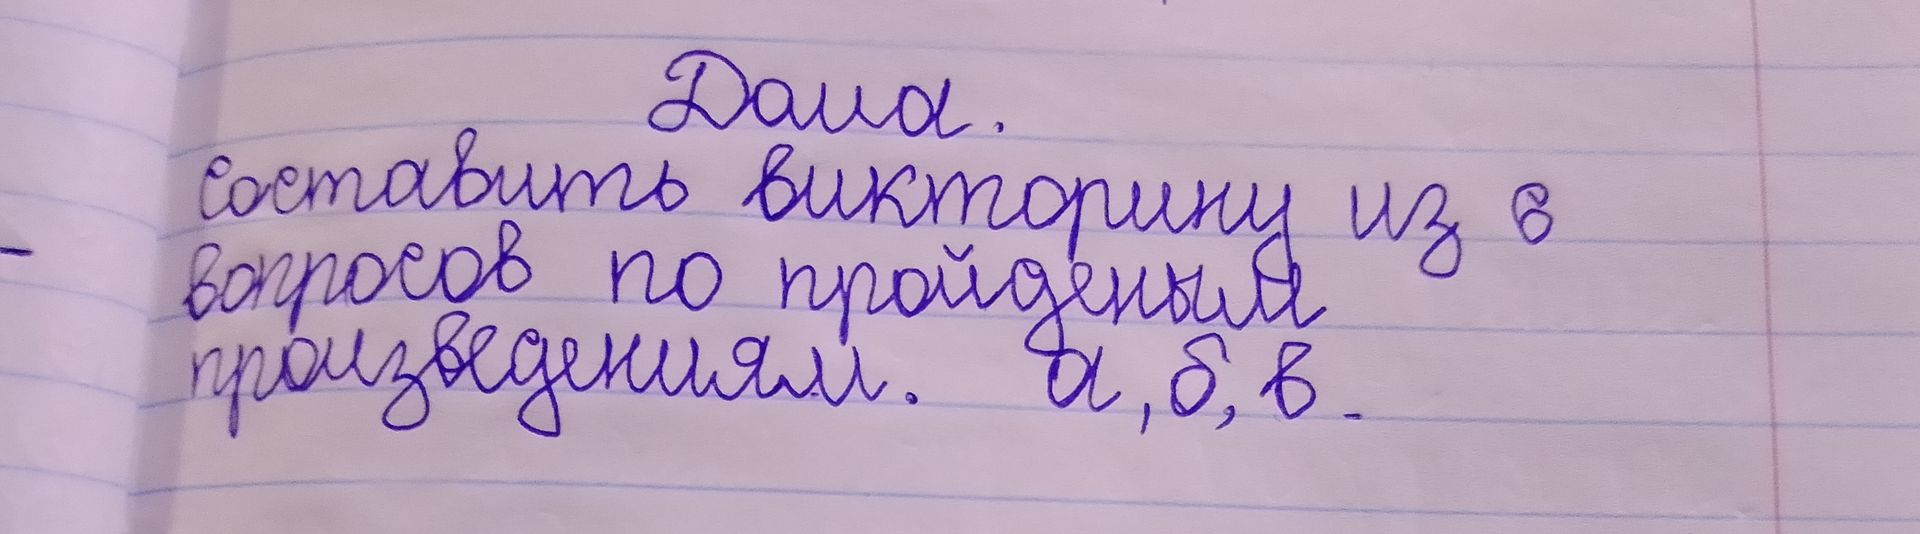 Дома.
составить викторину из 6
вопросов по пройденым
произведениям. а, б, в.